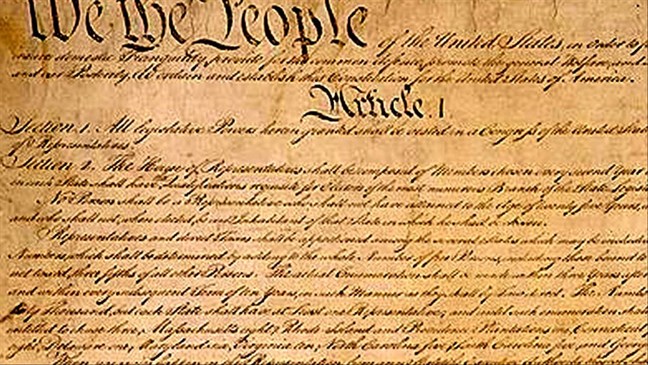 We the People of the United States, in Order to f
insure domestic Tranquility, provide for the common defence, promote the general Welfare, and
and our Posterity, do ordain and establish this Constitution for the United States of America.
Article. I.
Section. 1. All legislative Powers herein granted shall be vested in a Congress of the United States
of Representatives.
Section. 2. The House of Representatives shall be composed of Members chosen every second Year
in each State shall have Qualifications requisite for Electors of the most numerous Branch of the State Legisl
No Person shall be a Representative who shall not have attained to the Age of twenty five Years,
and who shall not, when elected, be an Inhabitant of that State in which he shall be chosen.
Representatives and direct Taxes shall be apportioned among the several States which may be included
Numbers, which shall be determined by adding to the whole Number of free Persons, including those bound to
not taxed, three fifths of all other Persons. The actual Enumeration shall be made within three Years after
and within every subsequent Term of ten Years, in such Manner as they shall by Law direct. The Number
thirty Thousand, but each State shall have at Least one Representative; and until such enumeration shall
entitled to chuse three, Massachusetts eight, Rhode Island and Providence Plantations one, Connecticut
eight, Delaware one, Maryland six, Virginia ten, North Carolina five, South Carolina five, and Georg
When vacancies happen in the Representation